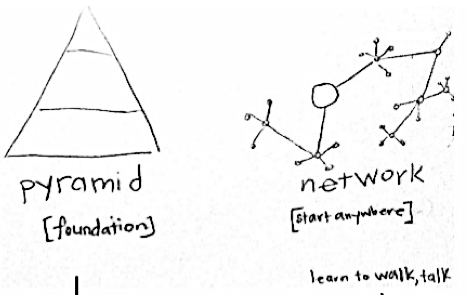 pyramid
[foundation]
network
[start anywhere]
learn to walk, talk